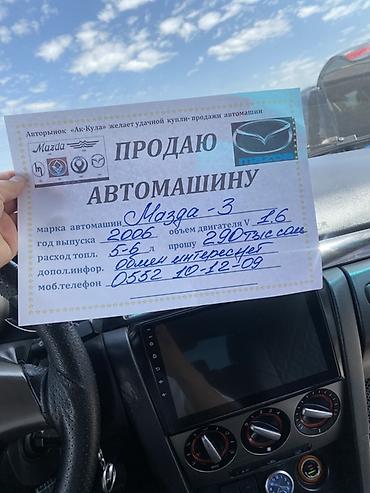 Авторынок «Ак-Кула» желает удачной купли-продажи автомашин
Mazda
mazda
ПРОДАЮ
АВТОМАШИНУ
марка автомашин Мазда-3
год выпуска 2006 объем двигателя V 1.6
расход топл. 5-6 л прошу 290 тыс сом
дополн.инфор. обмен интересует
моб.телефон 0552 10-12-09